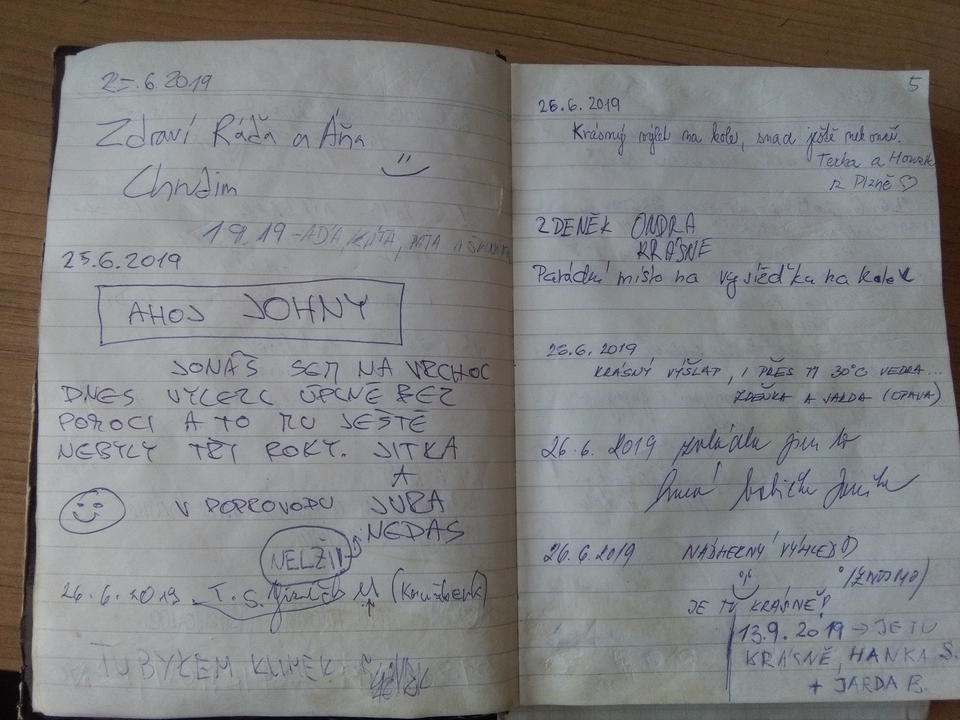 25.6.2019
Zdraví Ráďa a Áňa
Chrudim
1.9.19 - 
25.6.2019
AHOJ JOHNY
JONÁŠ SEM NA VRCHOL
DNES VYLEZL ÚPLNĚ BEZ
POMOCI A TO MU JEŠTĚ
NEBYLY TŘI ROKY. JITKA
A
V DOPROVODU JURA
NEDAS
NELŽI!
26.6.2019. T.S. (Kružberk)
TU BYL
5
26.6.2019
Krásný výlet na kole, snad ještě nekončí.
Terka a Honzek
z Plzně ♡
ZDENĚK ONDRA
KRÁSNE
Parádní místo na vyjížďka na kolek
26.6.2019
KRÁSNÝ VÝŠLAP, I PŘES TY 30°C VEDRA...
ZDEŇKA A JARDA (OPAVA)
26.6.2019 zvládla jsem to
babička
26.6.2019 NÁDHERNÝ VÝHLED
(ZNOJMO)
JE TU KRÁSNĚ!
13.9.2019 → JE TU
KRÁSNĚ, HANKA S.
+ JARDA B.